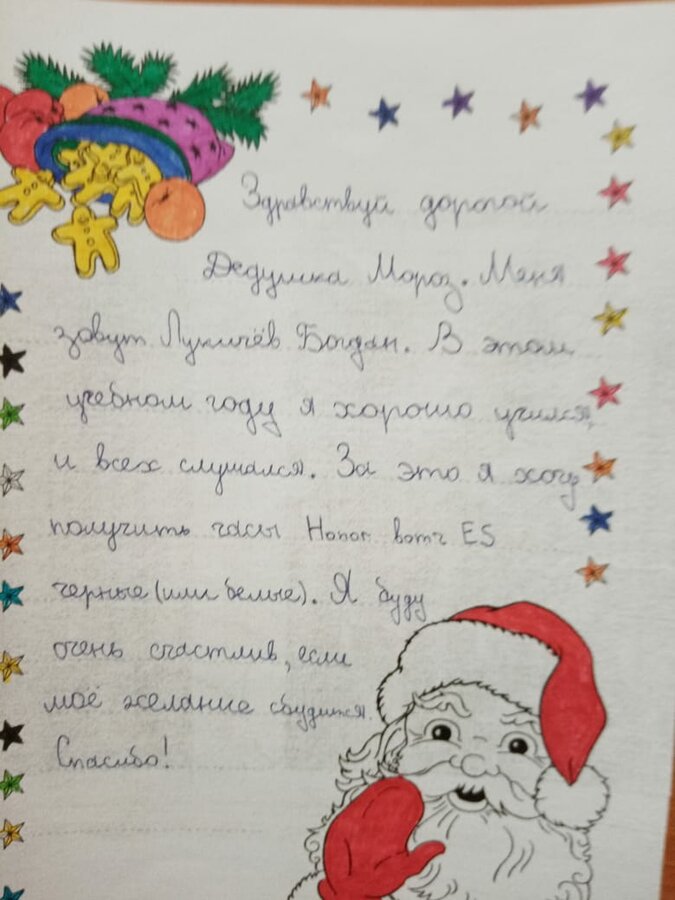 Здравствуй дорогой
Дедушка Мороз. Меня
зовут Лукичёв Богдан. В этом
учебном году я хорошо учился,
и всех слушался. За это я хочу
получить часы Honor вотч ES
черные (или белые). Я буду
очень счастлив, если
моё желание сбудится.
Спасибо!